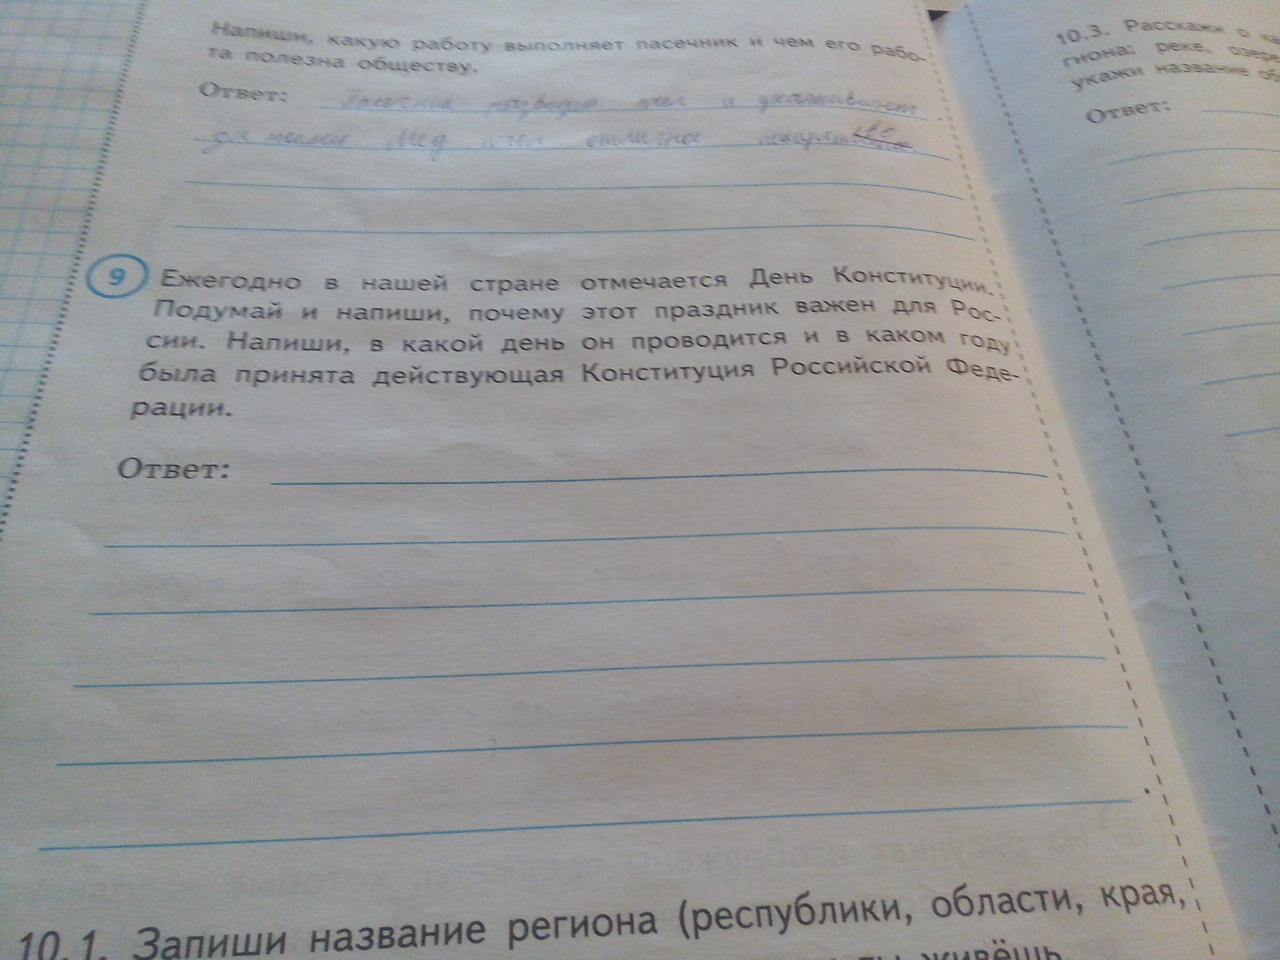 Напиши, какую работу выполняет пасечник и чем его рабо-
та полезна обществу.
Ответ: Пасечник разводит пчел и ухаживает
за ними. Мед пчел отличное
9 Ежегодно в нашей стране отмечается День Конституции.
Подумай и напиши, почему этот праздник важен для Рос-
сии. Напиши, в какой день он проводится и в каком году
была принята действующая Конституция Российской Феде-
рации.
Ответ:
10.1. Запиши название региона (республики, области, края,
живёшь.
10.3. Расскажи о
гиона: реке, озере
укажи название
Ответ: